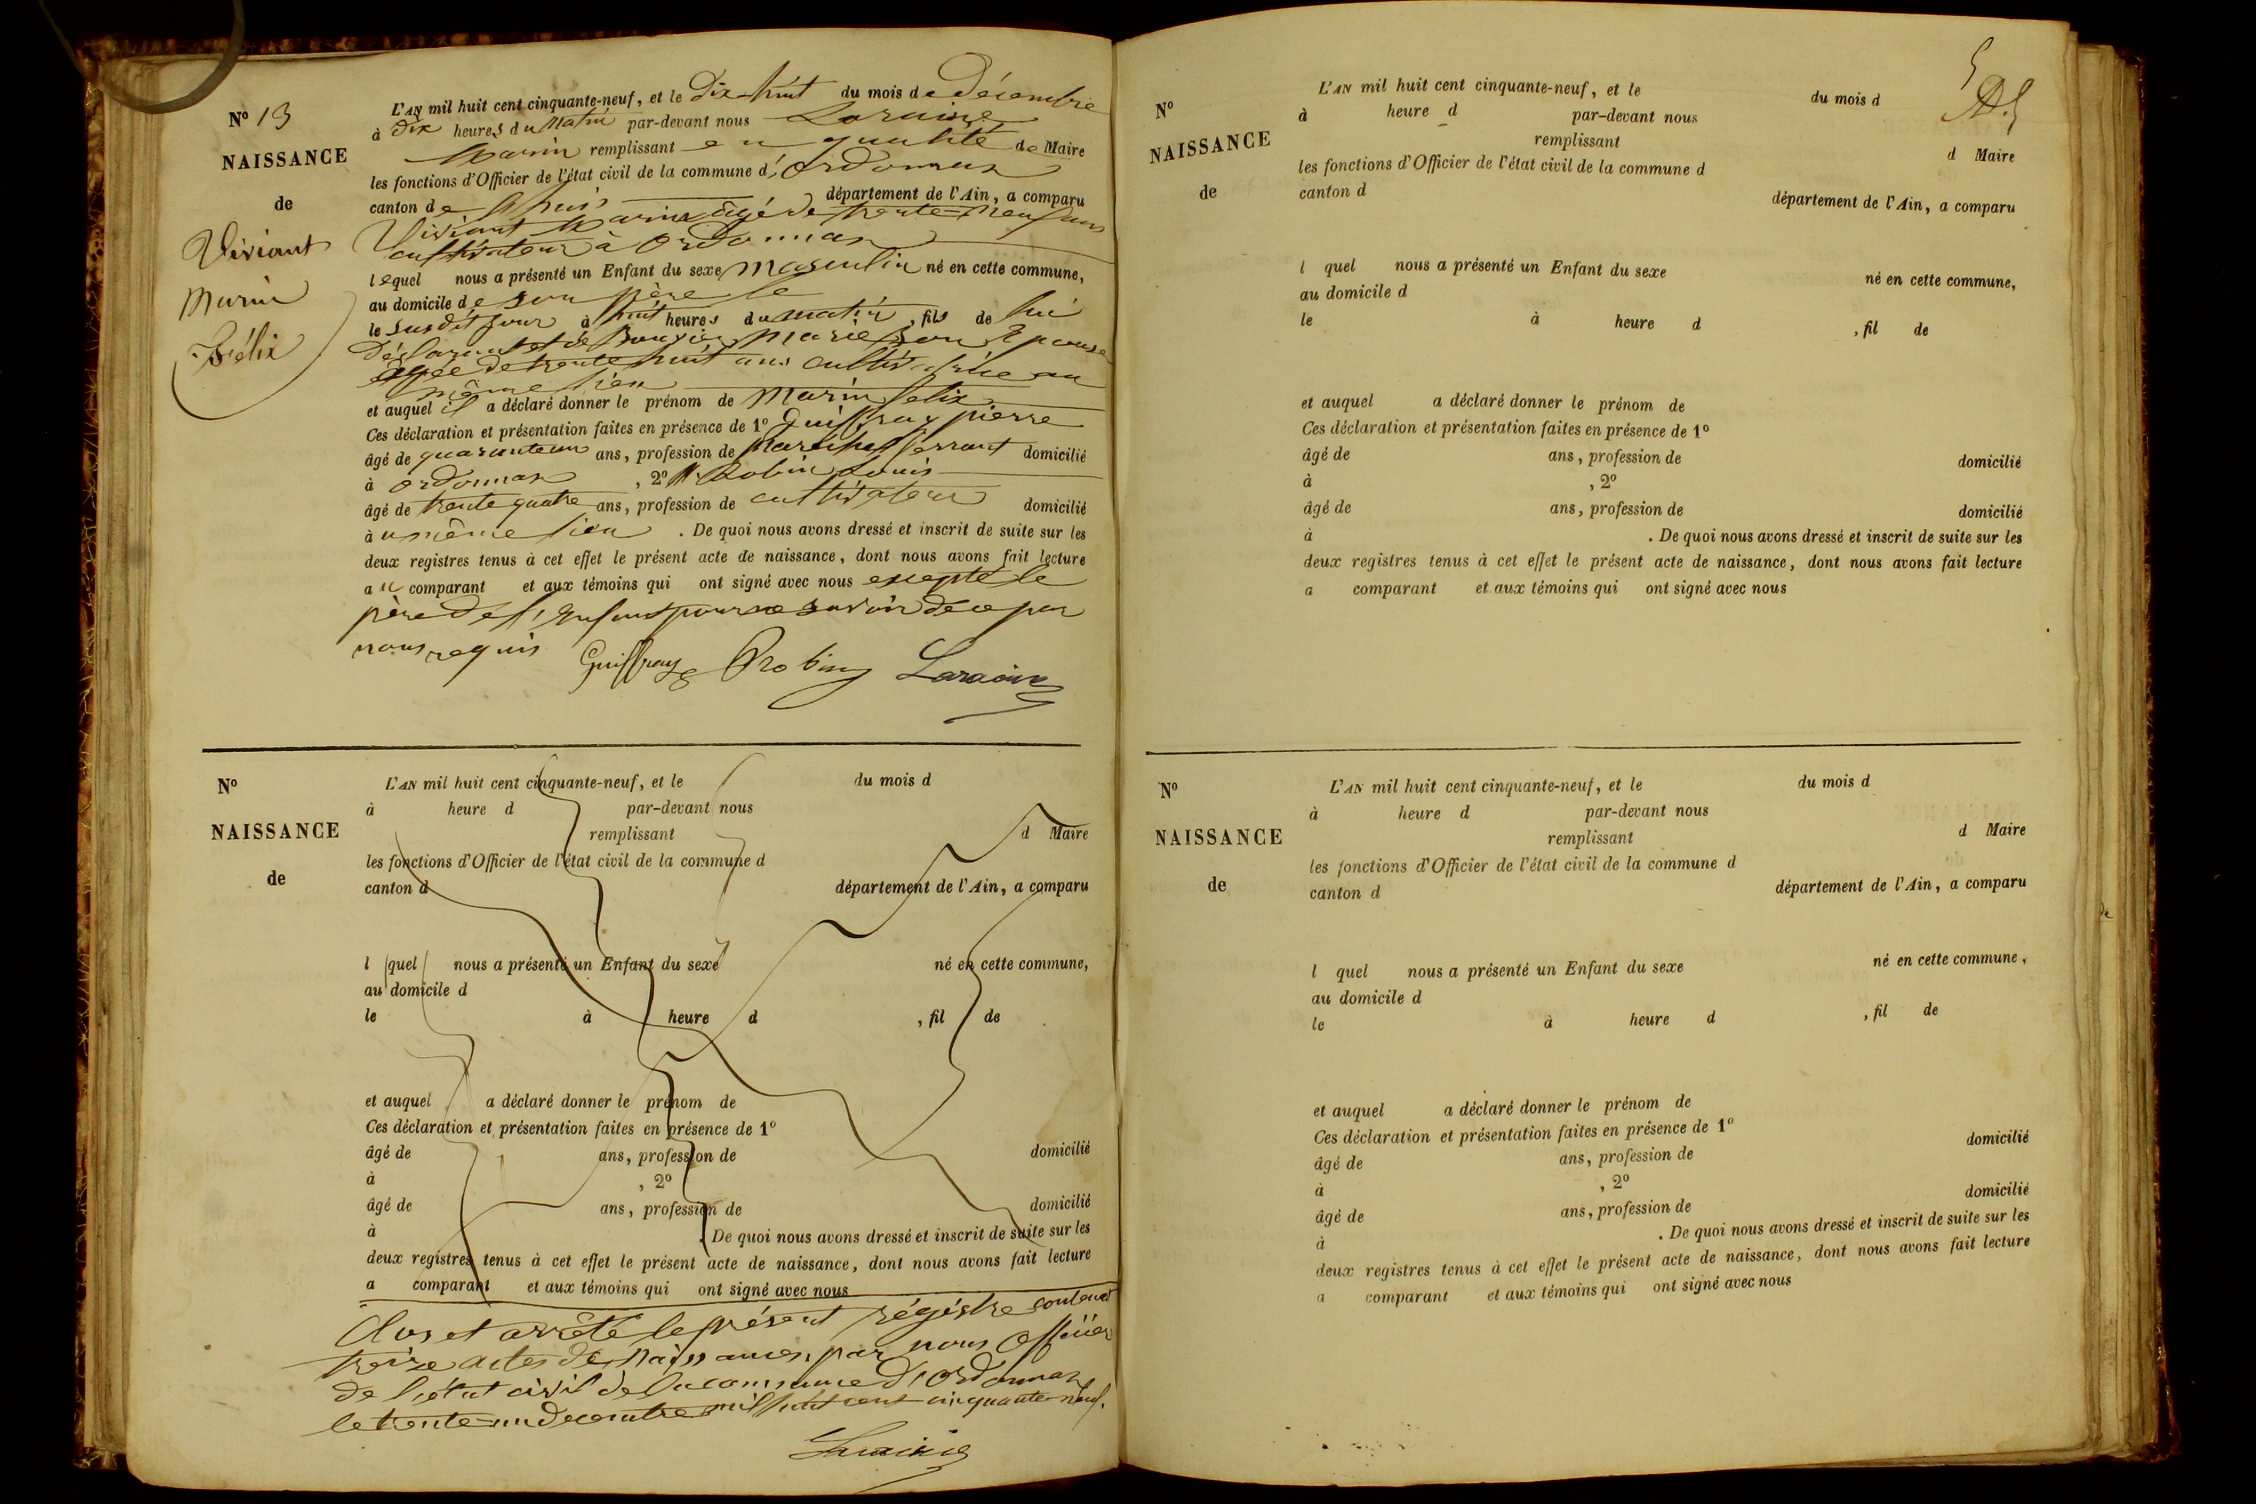 N° 13
NAISSANCE
de
Viviant
Marin
Félix
L'AN mil huit cent cinquante-neuf, et le Dix-huit du mois de Décembre
à dix heures du Matin par-devant nous Loraine
Marin remplissant en qualité de Maire
les fonctions d'Officier de l'état civil de la commune d'Ordonnas
canton de Lhuis département de l'Ain, a comparu
Viviant Marin âgé de trente-neuf ans
cultivateur à Ordonnas
lequel nous a présenté un Enfant du sexe masculin né en cette commune,
au domicile de son père le
le susdit jour à huit heures du matin, fils de lui
Déclarant et de Marie son Epouse
âgée de trente huit ans cultivatrice au
même lieu
et auquel il a déclaré donner le prénom de Marin felix
Ces déclaration et présentation faites en présence de 1° Guiffray pierre
âgé de quarante un ans, profession de Maréchal ferrant domicilié
à ordonnas, 2° Robin Louis
âgé de trente quatre ans, profession de cultivateur domicilié
à u même lieu. De quoi nous avons dressé et inscrit de suite sur les
deux registres tenus à cet effet le présent acte de naissance, dont nous avons fait lecture
au comparant et aux témoins qui ont signé avec nous excepté le
père de l'Enfant pour ne savoir de ce par
nous requis
Guiffray Robin Loraine
N°
NAISSANCE
de
L'AN mil huit cent cinquante-neuf, et le du mois d
à heure d par-devant nous
remplissant d Maire
les fonctions d'Officier de l'état civil de la commune d
canton d département de l'Ain, a comparu
l quel nous a présenté un Enfant du sexe né en cette commune,
au domicile d
le à heure d , fil de
et auquel a déclaré donner le prénom de
Ces déclaration et présentation faites en présence de 1°
âgé de ans, profession de domicilié
à , 2°
âgé de ans, profession de domicilié
à . De quoi nous avons dressé et inscrit de suite sur les
deux registres tenus à cet effet le présent acte de naissance, dont nous avons fait lecture
a comparant et aux témoins qui ont signé avec nous
Clos et arrêté le présent régistre contenant
treize actes de Naissances, par nous Officier
de l'état civil de la commune d'Ordonnas
le trente-un decembre mil huit cent cinquante-neuf.
Loraine
5
N°
NAISSANCE
de
L'AN mil huit cent cinquante-neuf, et le du mois d
à heure d par-devant nous
remplissant d Maire
les fonctions d'Officier de l'état civil de la commune d
canton d département de l'Ain, a comparu
l quel nous a présenté un Enfant du sexe né en cette commune,
au domicile d
le à heure d , fil de
et auquel a déclaré donner le prénom de
Ces déclaration et présentation faites en présence de 1°
âgé de ans, profession de domicilié
à , 2°
âgé de ans, profession de domicilié
à . De quoi nous avons dressé et inscrit de suite sur les
deux registres tenus à cet effet le présent acte de naissance, dont nous avons fait lecture
a comparant et aux témoins qui ont signé avec nous
N°
NAISSANCE
de
L'AN mil huit cent cinquante-neuf, et le du mois d
à heure d par-devant nous
remplissant d Maire
les fonctions d'Officier de l'état civil de la commune d
canton d département de l'Ain, a comparu
l quel nous a présenté un Enfant du sexe né en cette commune,
au domicile d
le à heure d , fil de
et auquel a déclaré donner le prénom de
Ces déclaration et présentation faites en présence de 1°
âgé de ans, profession de domicilié
à , 2°
âgé de ans, profession de domicilié
à . De quoi nous avons dressé et inscrit de suite sur les
deux registres tenus à cet effet le présent acte de naissance, dont nous avons fait lecture
a comparant et aux témoins qui ont signé avec nous